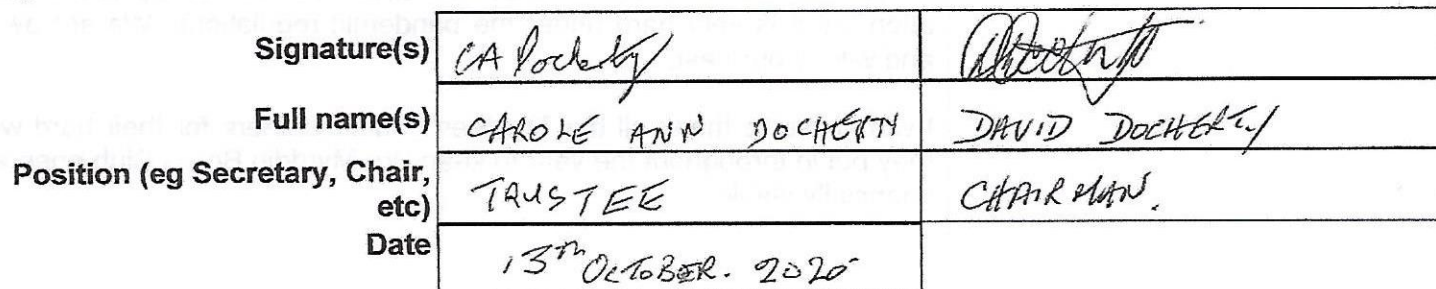 Signature(s) CA Docherty
Full name(s) CAROLE ANN DOCHERTY DAVID DOCHERTY
Position (eg Secretary, Chair,
etc) TRUSTEE CHAIRMAN.
Date 13th OCTOBER. 2020